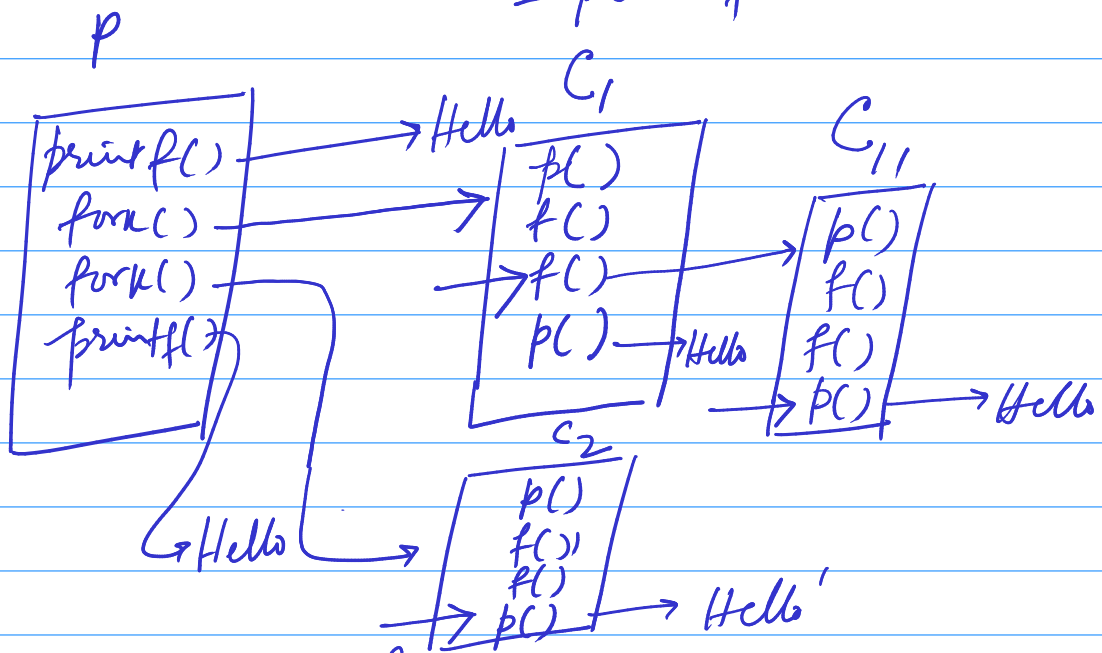 P
printf()
fork()
fork()
printf()
Hello
Hello
C1
p()
f()
f()
p()
Hello
C11
p()
f()
f()
p()
Hello
C2
p()
f()
f()
p()
Hello